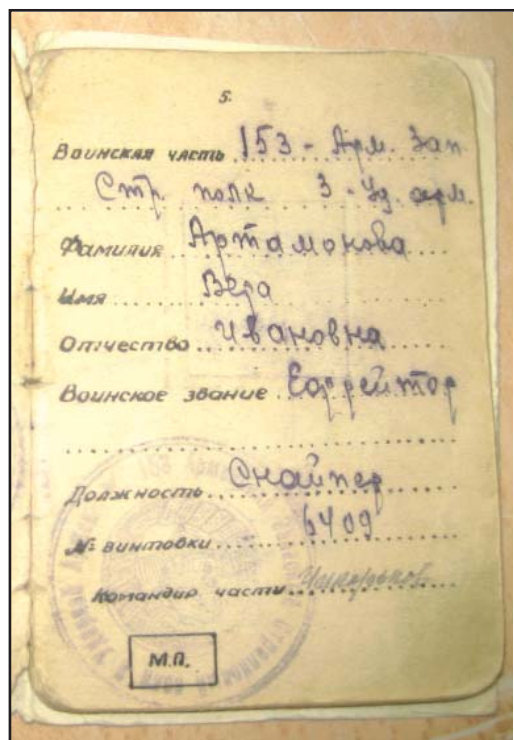 5.
Воинская часть 153 - Арм. Зап
Стр. полк 3 - Уд. арм.
Фамилия Артамонова
Имя Вера
Отчество Ивановна
Воинское звание Ефрейтор
Должность Снайпер
№ винтовки 6409
Командир части
М.П.